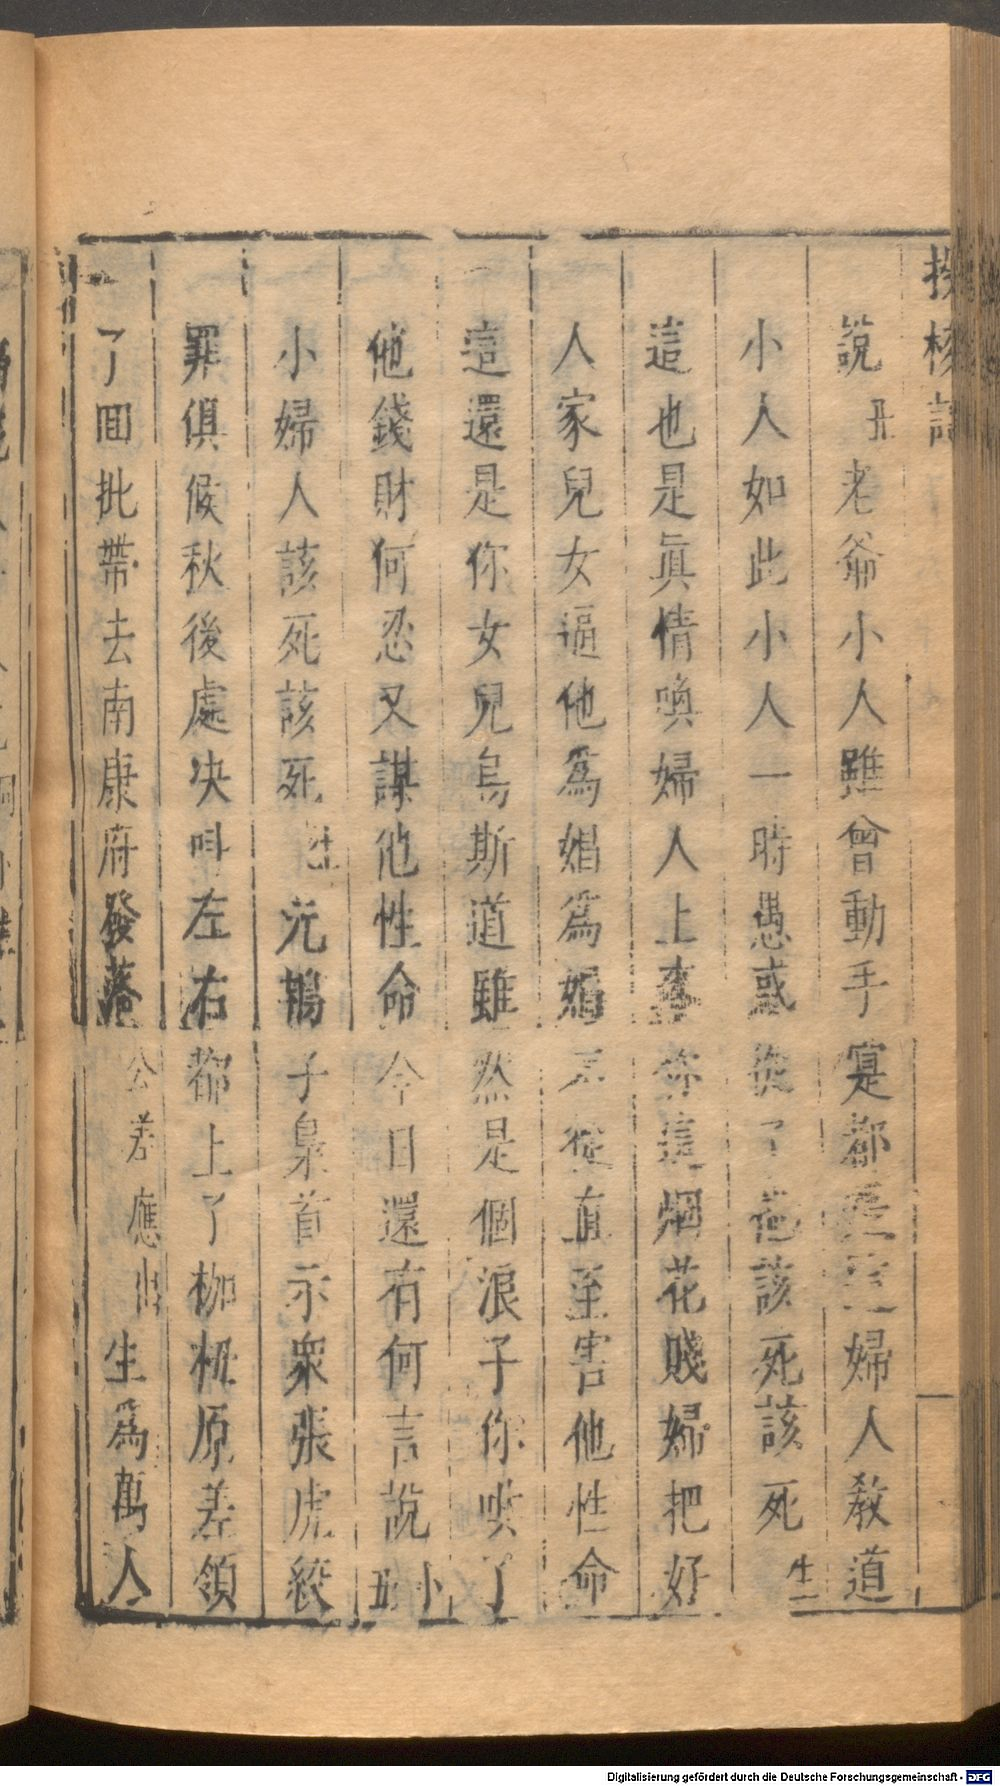 投梭記
說丑老爺小人雖曾動手寔都是這婦人教道
小人如此小人一時愚惑從了他該死該死生
這也是眞情喚婦人上來你這烟花賤婦把好
人家兒女逼他爲娼爲婦不從直至害他性命
這還是你女兒烏斯道雖然是個浪子你哄了
他錢財何忍又謀他性命今日還有何言說小丑
小婦人該死該死生元鴇子梟首示衆張虎絞
罪俱候秋後處决叫左右都上了枷杻原差領
了囬批帶去南康府發落公差應
生爲萬人
Digitalisierung gefördert durch die Deutsche Forschungsgemeinschaft - DFG